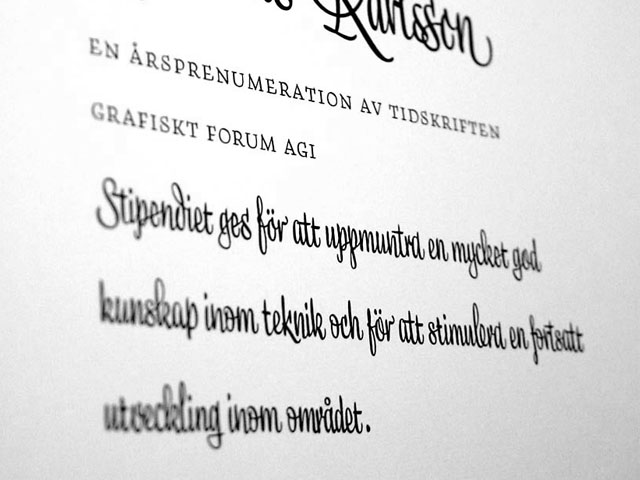 Karlsson
EN ÅRSPRENUMERATION AV TIDSKRIFTEN
GRAFISKT FORUM AGI
Stipendiet ges för att uppmuntra en mycket god
kunskap inom teknik och för att stimulera en fortsatt
utveckling inom området.